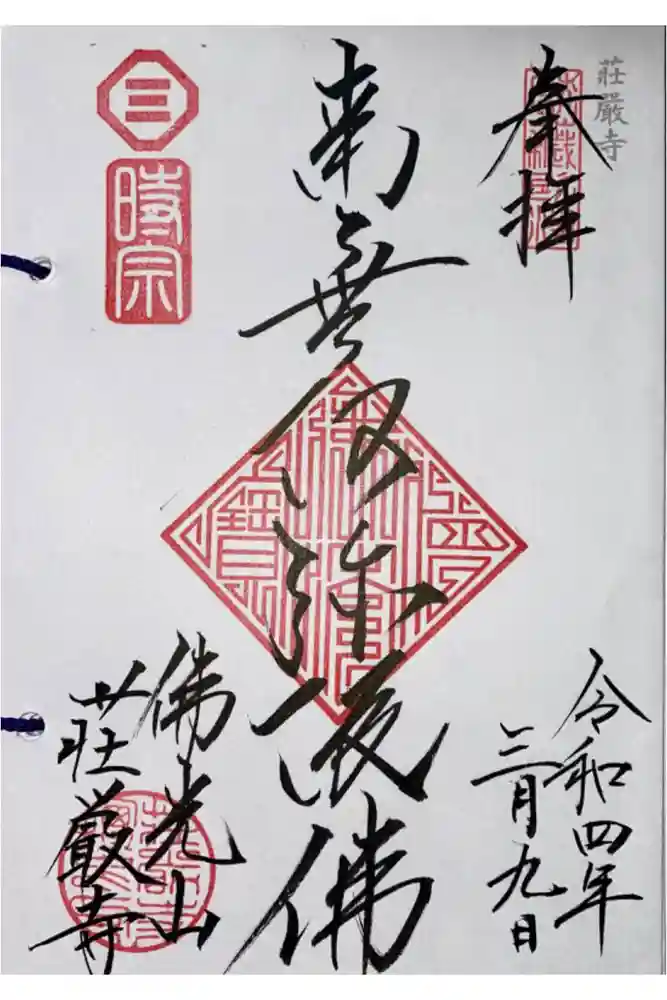 莊嚴寺
奉拝
令和四年
三月九日
南無阿弥陀佛
佛光山
荘厳寺
三
時宗